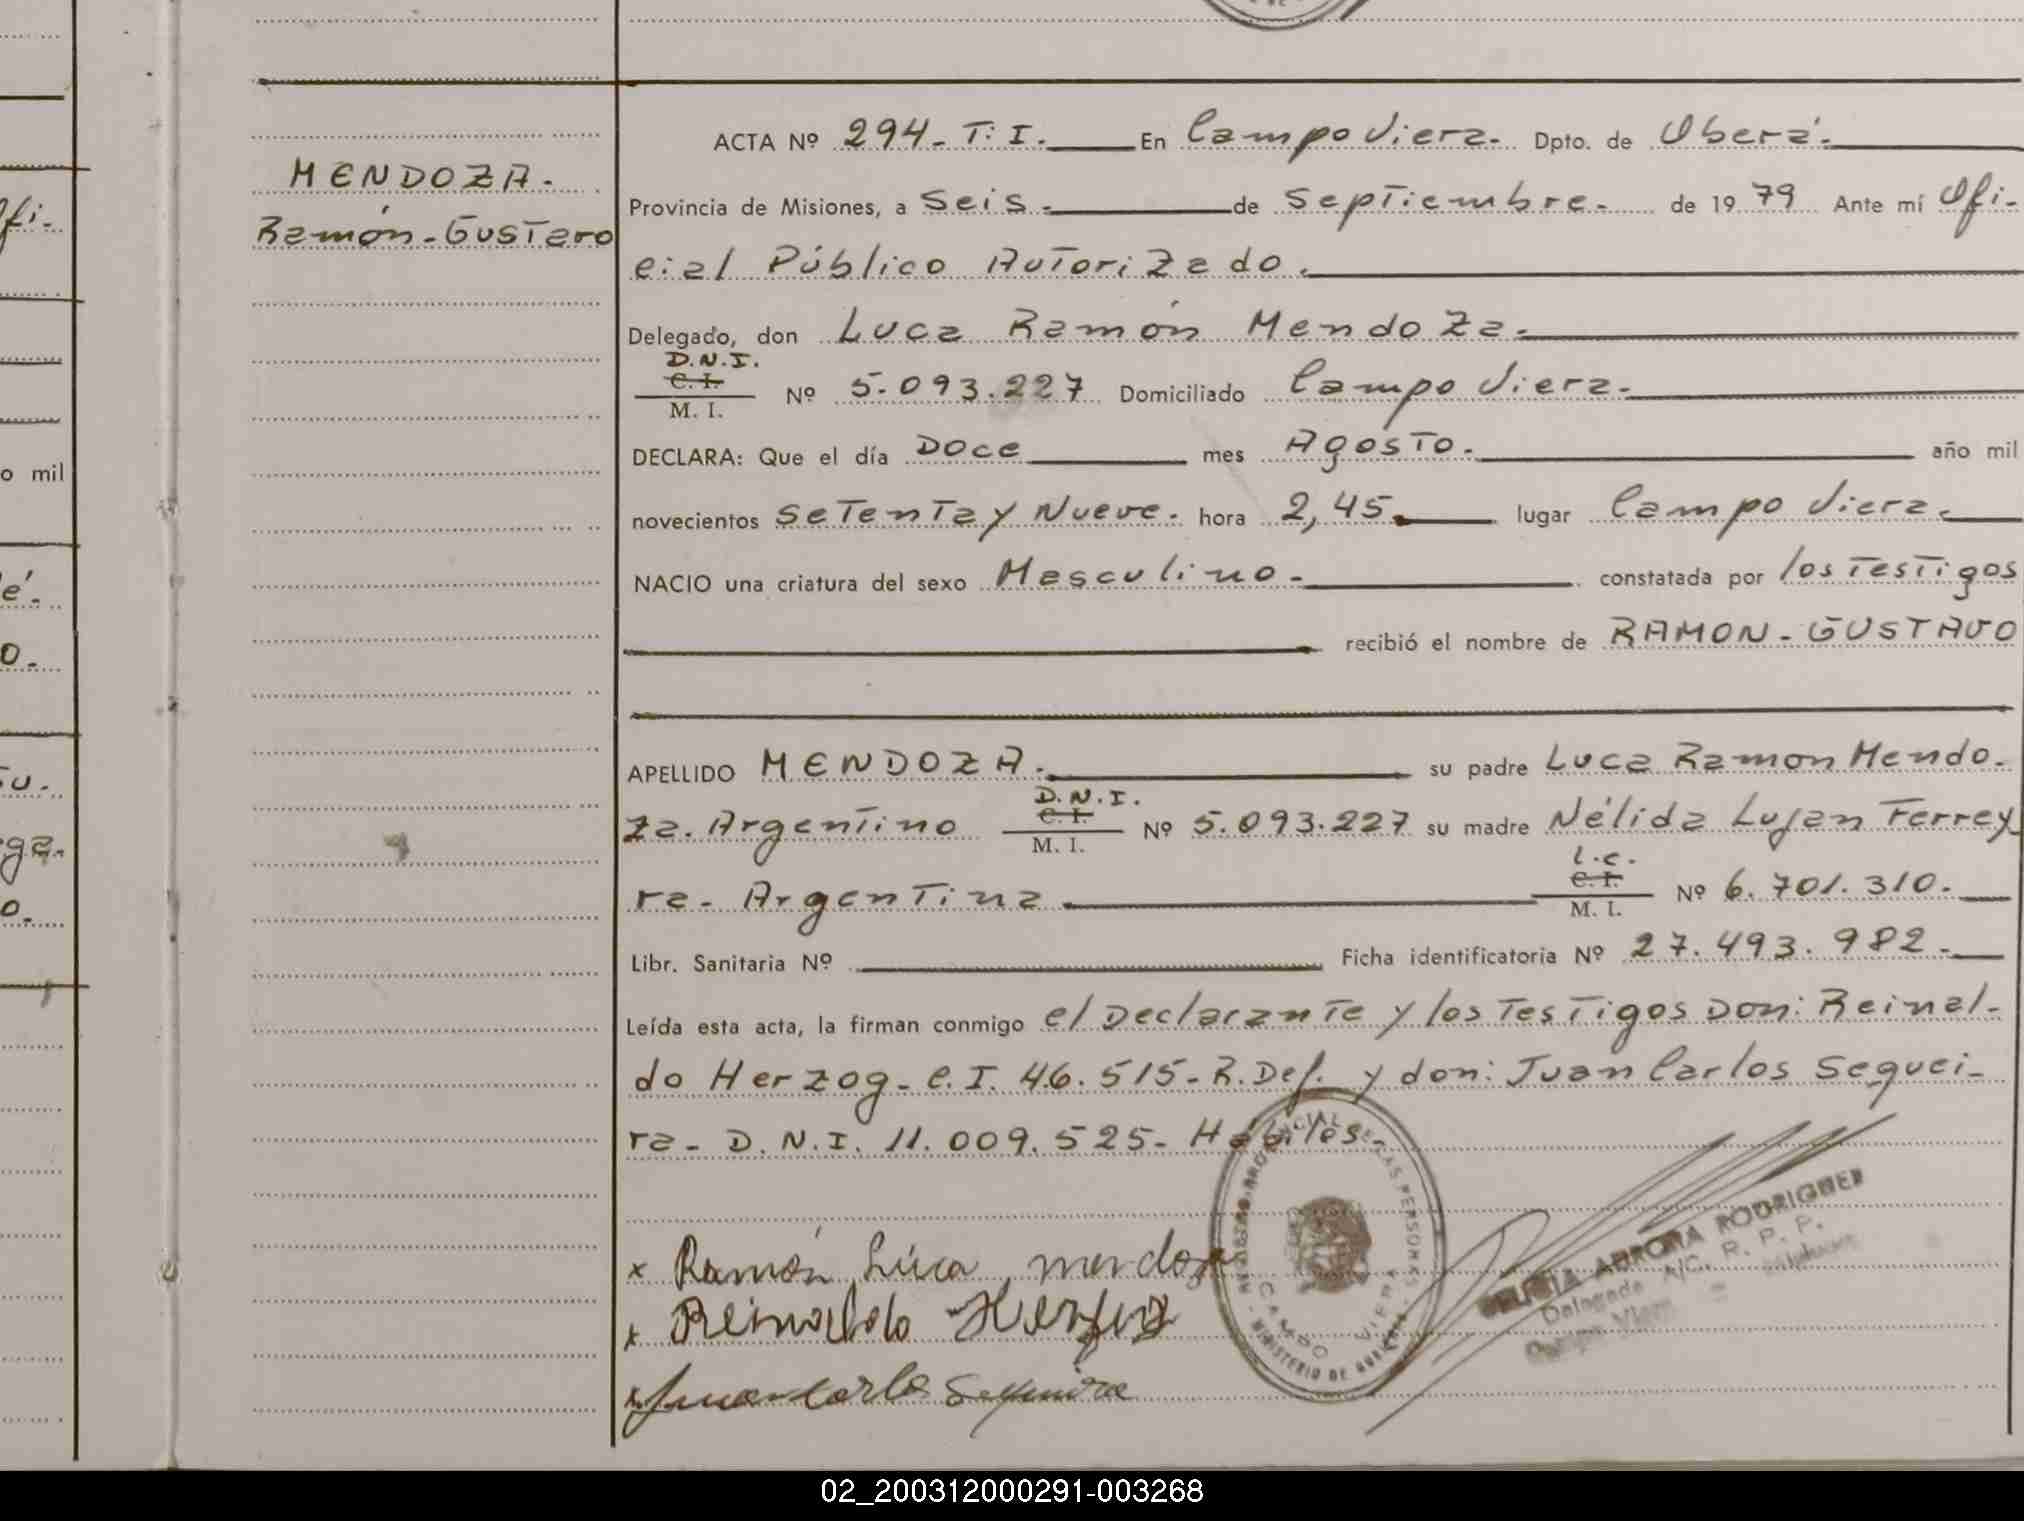 MENDOZA.
Ramón-Gustavo
ACTA Nº 294-T:I. En Campo Viera. Dpto. de Oberá.
Provincia de Misiones, a seis. de septiembre. de 1979 Ante mí Ofi-
cial Público Autorizado.
Delegado, don Luca Ramón Mendoza.
D.N.I.
C. I.
M. I. Nº 5.093.227 Domiciliado Campo Viera.
DECLARA: Que el día Doce mes Agosto. año mil
novecientos setenta y Nueve. hora 2,45. lugar Campo Viera.
NACIO una criatura del sexo Masculino. constatada por los testigos
recibió el nombre de RAMON-GUSTAVO
APELLIDO MENDOZA. su padre Luca Ramon Mendo.
D.N.I.
C. I.
za. Argentino M. I. Nº 5.093.227 su madre Nélida Lujan Ferrey
L.C.
C. I.
ra- Argentina M. I. Nº 6.701.310.
Libr. Sanitaria Nº Ficha identificatoria Nº 27.493.982.
Leída esta acta, la firman conmigo el Declarante y los testigos Don: Reinal-
do Herzog- C.I. 46.515-R.Def. y don: Juan Carlos Sequei-
ra- D.N.I. 11.009.525- Hábiles-
x Ramón Lúca mendoza
x Reinaldo Herzog
x Juan Carlos Sequeira
PROVINCIAL DE LAS PERSONAS
CAMPO VIERA
MINISTERIO DE
AURORA RODRIGUEZ
Delegada A/C. R. P. P.
Campo Viera
ofi.
o mil
é.
o.
su.
ga.
o.
02_200312000291-003268